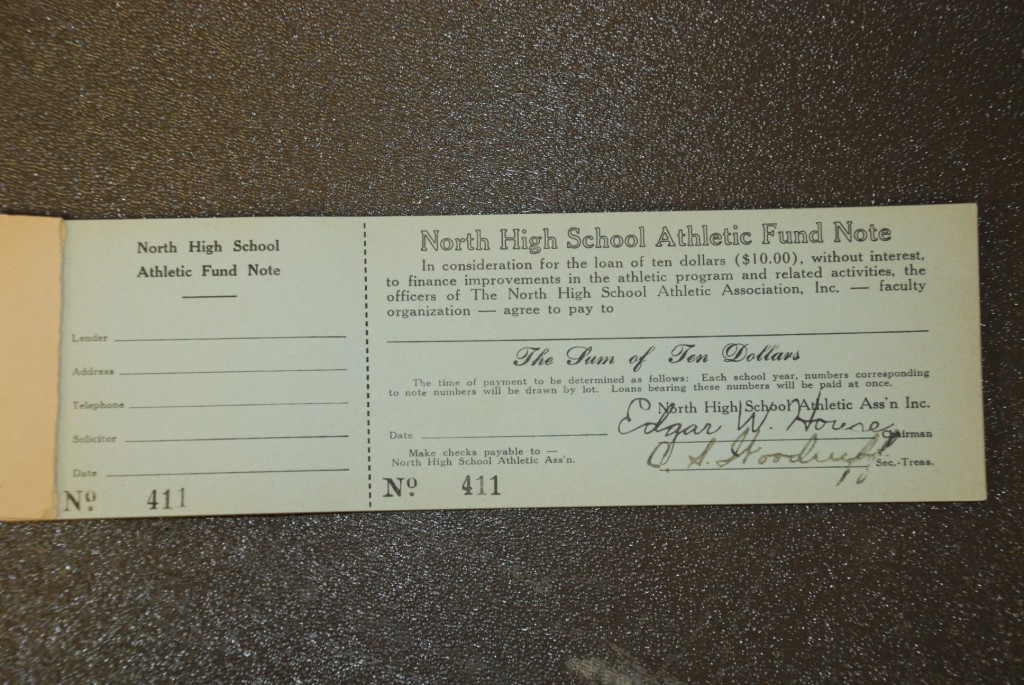 North High School
Athletic Fund Note
Lender
Address
Telephone
Solicitor
Date
Nº 411
North High School Athletic Fund Note
In consideration for the loan of ten dollars ($10.00), without interest,
to finance improvements in the athletic program and related activities, the
officers of The North High School Athletic Association, Inc. — faculty
organization — agree to pay to
The Sum of Ten Dollars
The time of payment to be determined as follows: Each school year, numbers corresponding
to note numbers will be drawn by lot. Loans bearing these numbers will be paid at once.
North High School Athletic Ass'n Inc.
Date
Edgar W. House
Chairman
Make checks payable to —
North High School Athletic Ass'n.
C. S. Woodruff
Sec.-Treas.
Nº 411